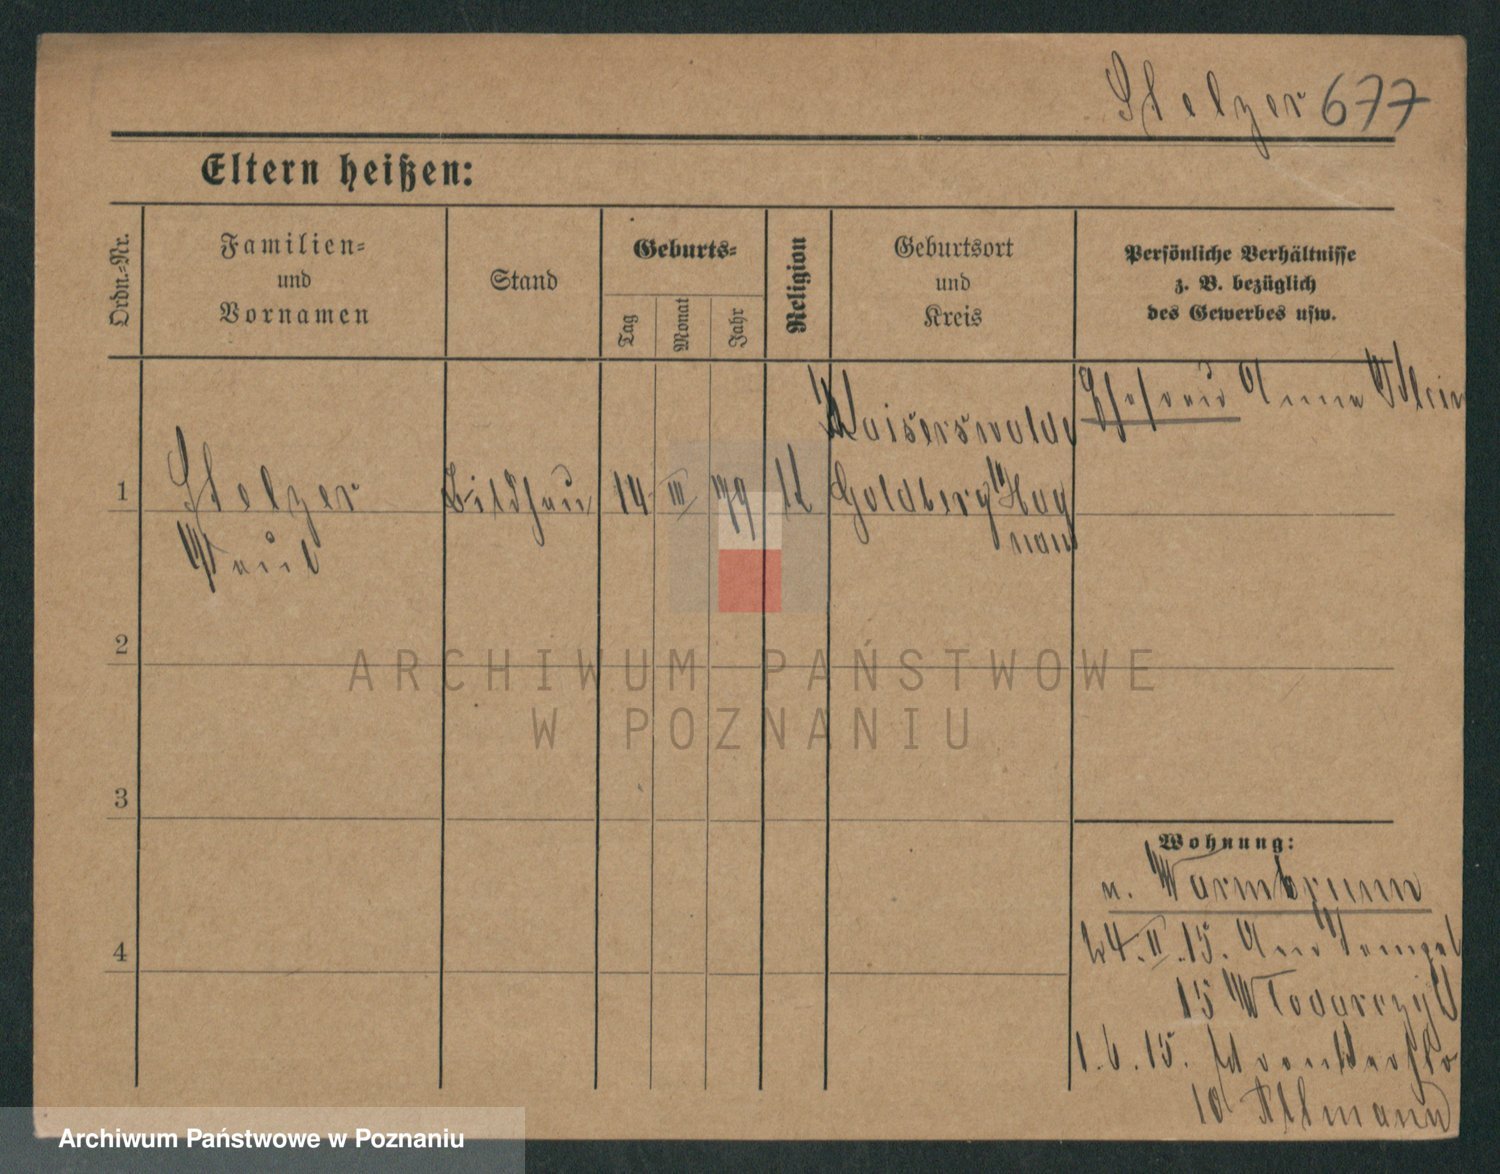 Stelzer 677
Eltern heißen:
Ordn.=Nr.
Familien=
und
Vornamen
Stand
Geburts=
Tag
Monat
Jahr
Religion
Geburtsort
und
Kreis
Persönliche Verhältnisse
z. B. bezüglich
des Gewerbes usw.
Ehefrau Anna Klein
Kaiserswalde
1 Stelzer Bildhau 14 III 79 Goldberg Hay
nau
Paul
2
3
4
Wohnung:
n. Warmbrunn
24. II. 15. Am Tempel
15 Wlodarczyk
1. 6. 15.
10
ARCHIWUM PAŃSTWOWE
W POZNANIU
Archiwum Państwowe w Poznaniu